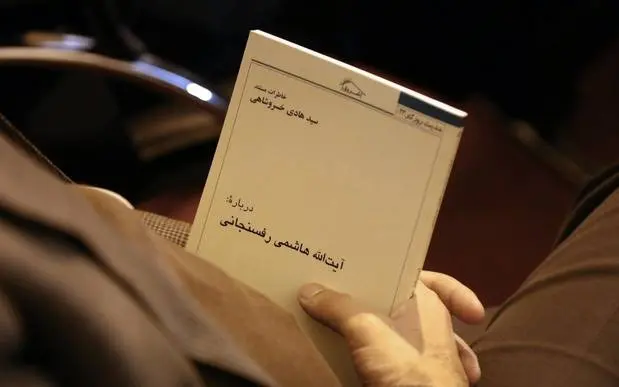 حدیث روزگار ۲۳
خاطرات مستند
سید هادی خسروشاهی
دربارهٔ:
آیت‌الله هاشمی رفسنجانی